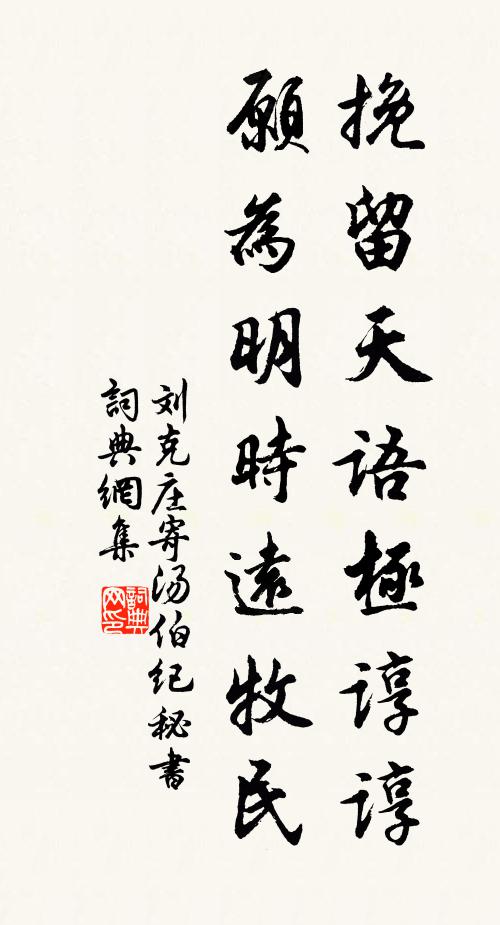 挽留天语極谆谆
願為明時遠牧民
刘克庄寄汤伯纪秘書
詞典網集
詞典网印